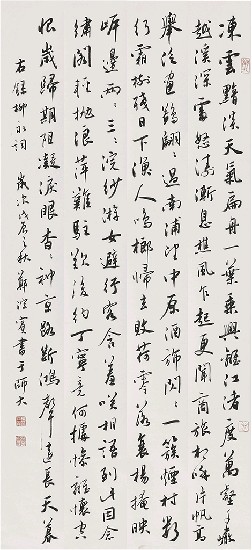 凍雲黯淡天氣扁舟一葉乘興離江渚度萬壑千巖
越溪深處怒濤漸息樵風乍起更聞商旅相呼片帆高
舉泛畫鷁翩々過南浦望中原酒旆閃々一簇煙村數
行霜樹殘日下漁人鳴榔歸去敗荷零落衰楊掩映
岸邊兩々三々浣紗游女避行客含羞笑相語到此因念
繡閣輕拋浪萍難駐歎後約丁寧竟何據慘離懷空
恨歲歸期阻凝淚眼杳々神京路斷鴻聲遠長天暮
右錄柳永詞 歲次戊辰之秋 賓書于師大